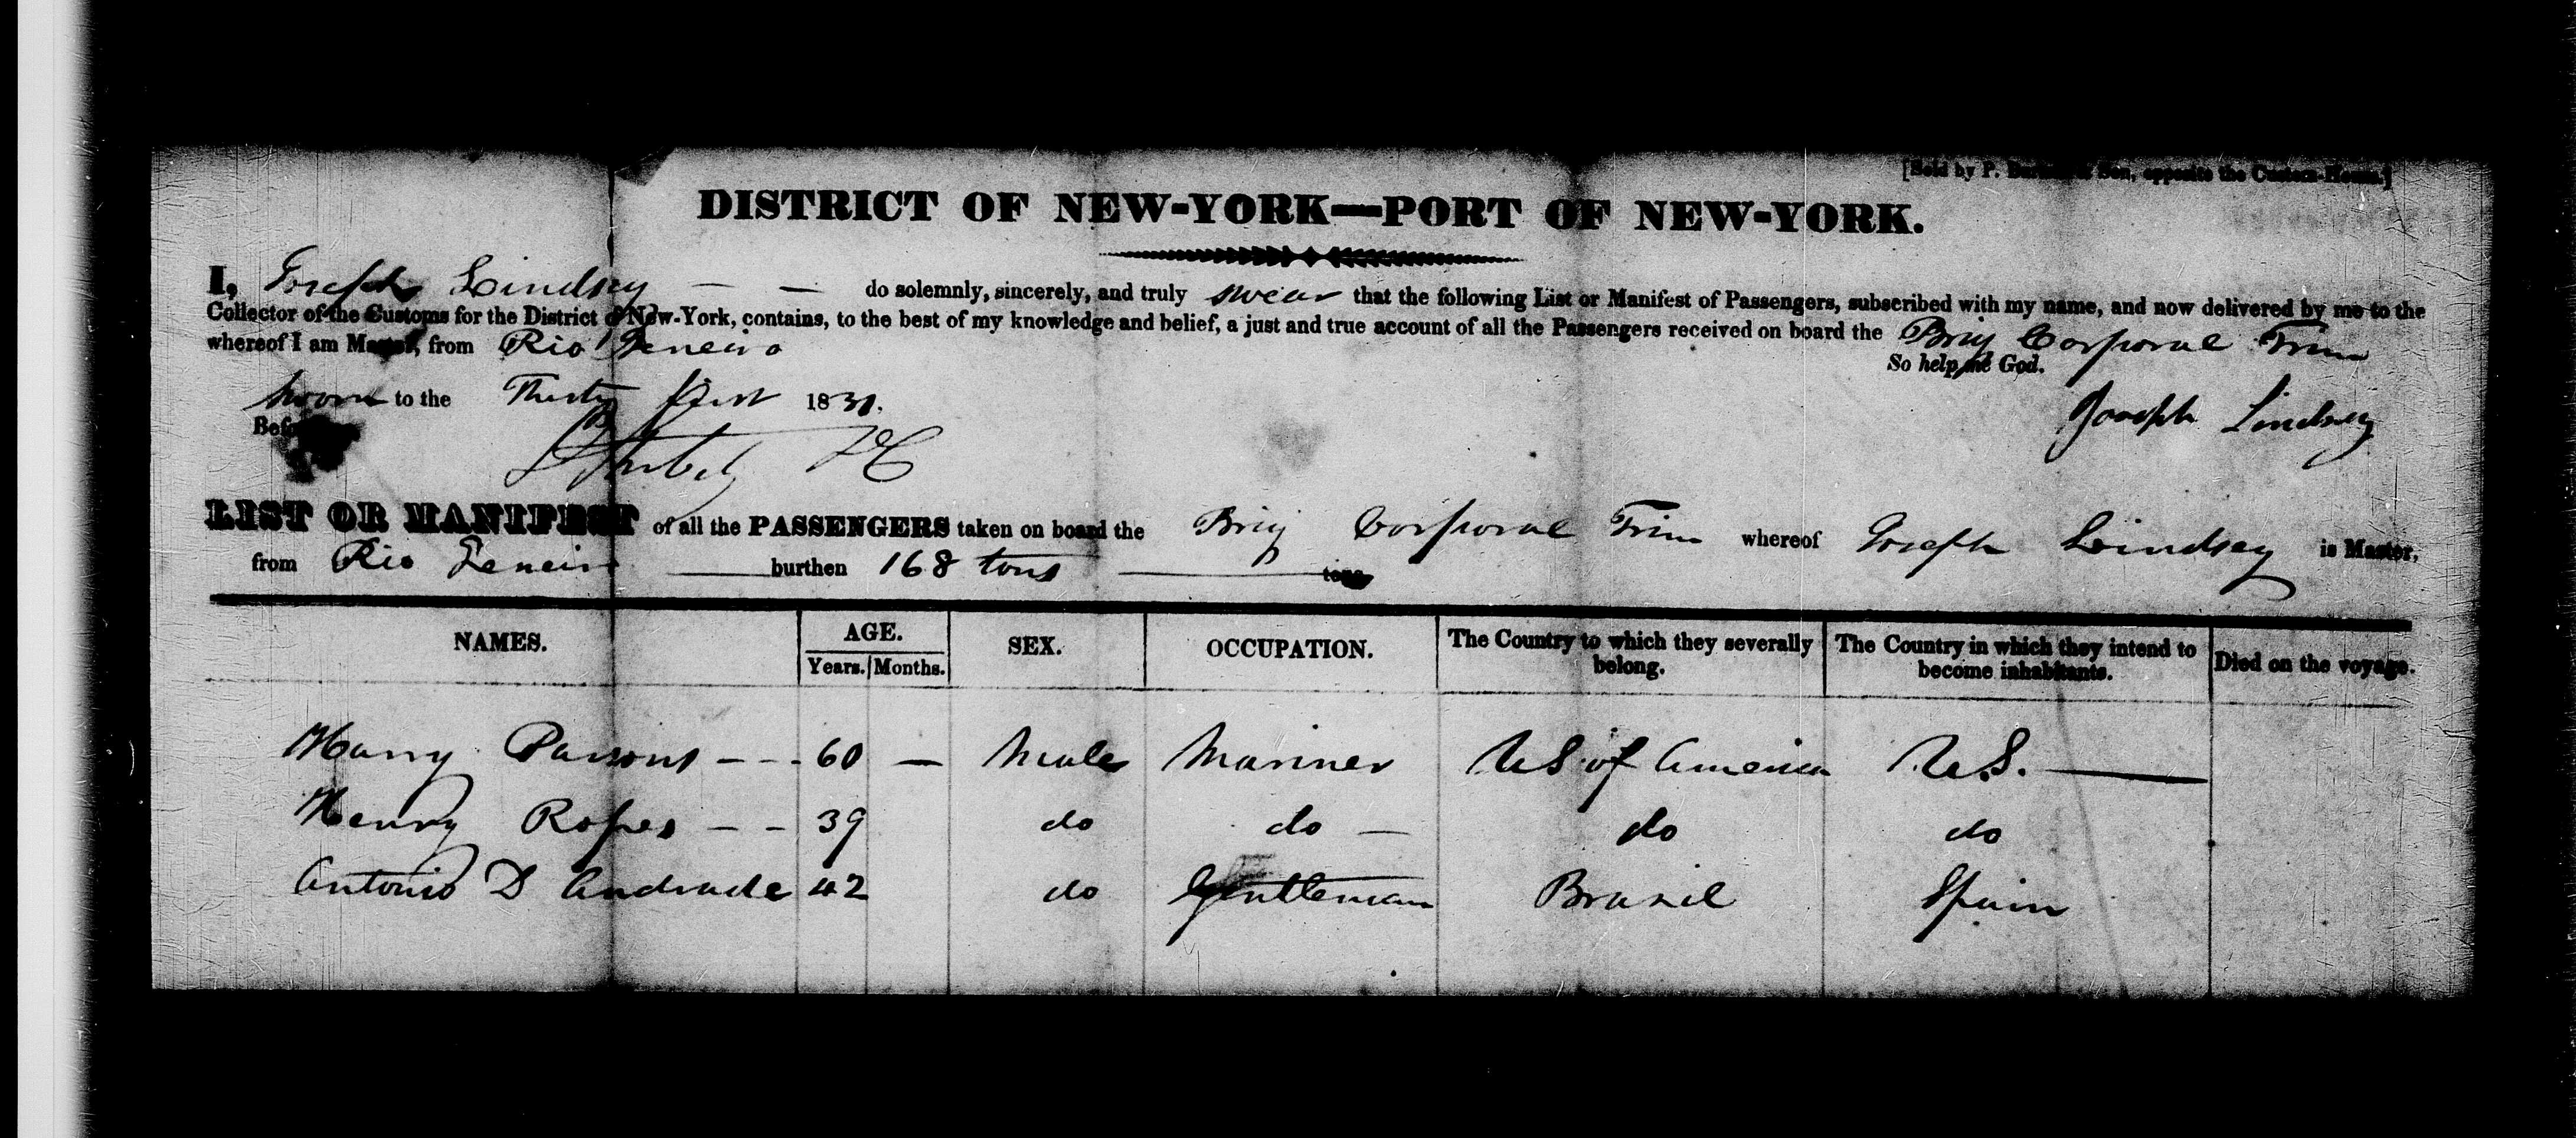 [Sold by P. Son, opposite the Custom-House.]
DISTRICT OF NEW-YORK—PORT OF NEW-YORK.
I, Joseph Lindsey — — do solemnly, sincerely, and truly swear that the following List or Manifest of Passengers, subscribed with my name, and now delivered by me to the
Collector of the Customs for the District of New-York, contains, to the best of my knowledge and belief, a just and true account of all the Passengers received on board the Brig Corporal Trim
whereof I am Master, from Rio Jeneiro
So help me God.
Sworn to the Thirty first 1831.
Joseph Lindsey
LIST OR MANIFEST of all the PASSENGERS taken on board the Brig Corporal Trim whereof Joseph Lindsey is Master,
from Rio Jeneiro burthen 168 tons tons
NAMES. AGE. SEX. OCCUPATION. The Country to which they severally belong. The Country in which they intend to become inhabitants. Died on the voyage.
Years. Months.
Harry Parsons - - - 60 — Male Mariner US of America U.S. —
Henry Ropes - - 39 do do — do do
Antonio D Andrade 42 do Gentleman Brasil Spain